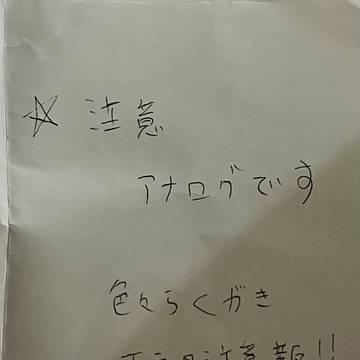 ☆ 注意
アナログです
色々らくがき
注意報!!